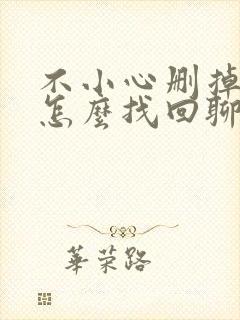 不小心删掉
怎麼找回聊
華荣路